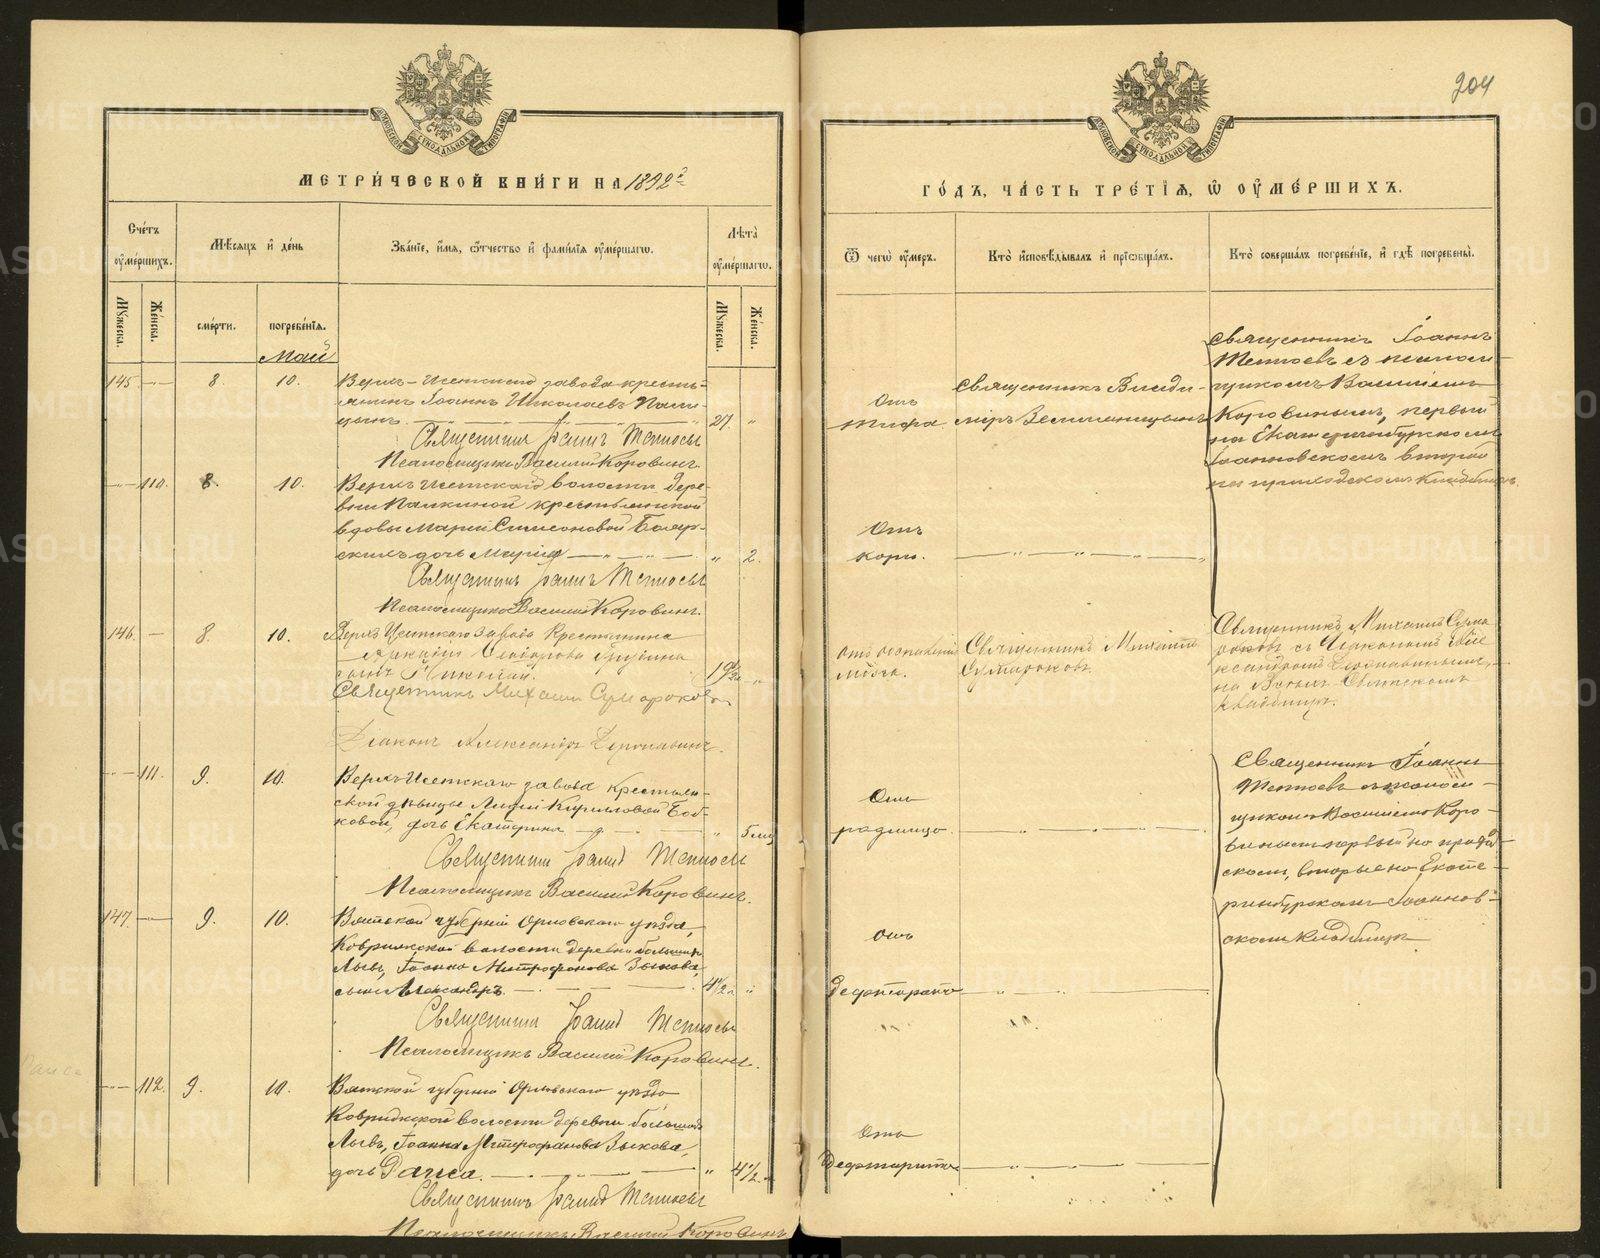 204
МЕТРИ́ЧЕСКОЙ КНИ́ГИ НА 1892 й
ГО́ДЪ, ЧА́СТЬ ТРЕ́ТЇѦ, Ѡ ОУ҆МЕ́РШИХЪ.
Сче́тъ оу҆ме́ршихъ.
Мѣ́сяцъ и҆ де́нь
Зва́нїе, и҆́мя, ѻ҆́тчество и҆ фами́лїя оу҆ме́ршагѡ.
Лѣта̀ оу҆ме́ршагѡ.
Ѿ чегѡ̀ оу҆́меръ.
Кто̀ и҆сповѣ́дывалъ и҆ прїѡбща́лъ.
Кто̀ соверша́лъ погребе́нїе, и҆ гдѣ̀ погребены̀.
Мꙋ́жеска.
Же́нска.
сме́рти.
погребе́нїя.
Мꙋ́жеска.
Же́нска.
Май
145 8. 10. Верхъ-Исетскаго завода кресть-
янинъ Іоаннъ Николаевъ
27.
Священникъ Іоаннъ
Псаломщикъ Василій Коровинъ.
Отъ
тифа
Священникъ Влади-
міръ Земляницынъ
Священникъ Іоаннъ
съ псалом-
щикомъ Василіемъ
Коровинымъ, первый
на Екатеринбургскомъ
Іоанновскомъ второй
на приходскомъ кладбищѣ.
110. 8. 10. Верхъ Исетской волости дере-
вни Палкиной крестьянской
вдовы Маріи Симеоновой Бояр-
скихъ дочь Марія
2.
Священникъ Іоаннъ
Псаломщикъ Василій Коровинъ.
Отъ
кори.
146. 8. 10. Верхъ Исетскаго завода Крестьянина
Ѳеодорова
сынъ Николай.
1 9/12
Священникъ Михаилъ Сумароковъ
Діаконъ Александръ
Отъ воспаленія
мозга.
Священникъ Михаилъ
Сумароковъ
Священникъ Михаилъ Сума
роковъ съ Діакономъ Але
ксандромъ
на Верхъ-Исетскомъ
кладбищѣ.
111. 9. 10. Верхъ-Исетскаго завода крестьян-
ской дѣвицы Лидіи Кирилловой Боб-
ковой, дочь Екатерина
5 мѣс
Священникъ Іоаннъ
Псаломщикъ Василій Коровинъ.
Отъ
родимца
Священникъ Іоаннъ
съ псалом-
щикомъ Василіемъ Коро-
винымъ первый на приход-
скомъ, вторые на Екате-
ринбургскомъ Іоаннов-
скомъ кладбищѣ.
147. 9. 10. Вятской губерніи Орловскаго уѣзда,
волости деревни большихъ
Іоанна Митрофанова Зыкова,
сынъ Александръ
4 1/2
Священникъ Іоаннъ
Псаломщикъ Василій Коровинъ.
Отъ
дефтерита
112. 9. 10. Вятской губерніи Орловскаго уѣзда
волости деревни большихъ
Іоанна Митрофанова Зыкова,
дочь Раиса.
4 1/2
Священникъ Іоаннъ
Псаломщикъ Василій Коровинъ
Отъ
дефтерита
Раиса
METRIKI.GASO-URAL.RU